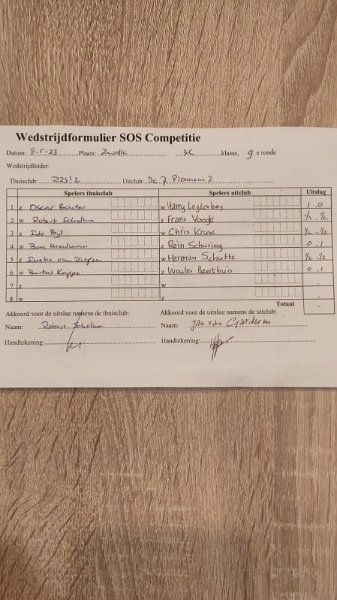 Wedstrijdformulier SOS Competitie
Datum: 8-5-23 Plaats: Zwolle 3C klasse, 9 e ronde
Wedstrijdleider:
Thuisclub: ZZS! 2 Uitclub: De 7 Pionnen 2
Spelers thuisclub Spelers uitclub Uitslag
1 z Oscar w Harry 1 . 0
2 w Robert Scholten z Frans Voogd ½ . ½
3 z Bijl w Chris ½ . ½
4 w Bas z Rein Schuring 0 . 1
5 z van Dieren w Herman Schutte ½ . ½
6 w Bertus z Wouter 0 . 1
7 z w .
8 w z .
Totaal .
Akkoord voor de uitslag namens de thuisclub: Akkoord voor de uitslag namens de uitclub:
Naam: Robert Scholten Naam: Jan van
Handtekening: Handtekening: